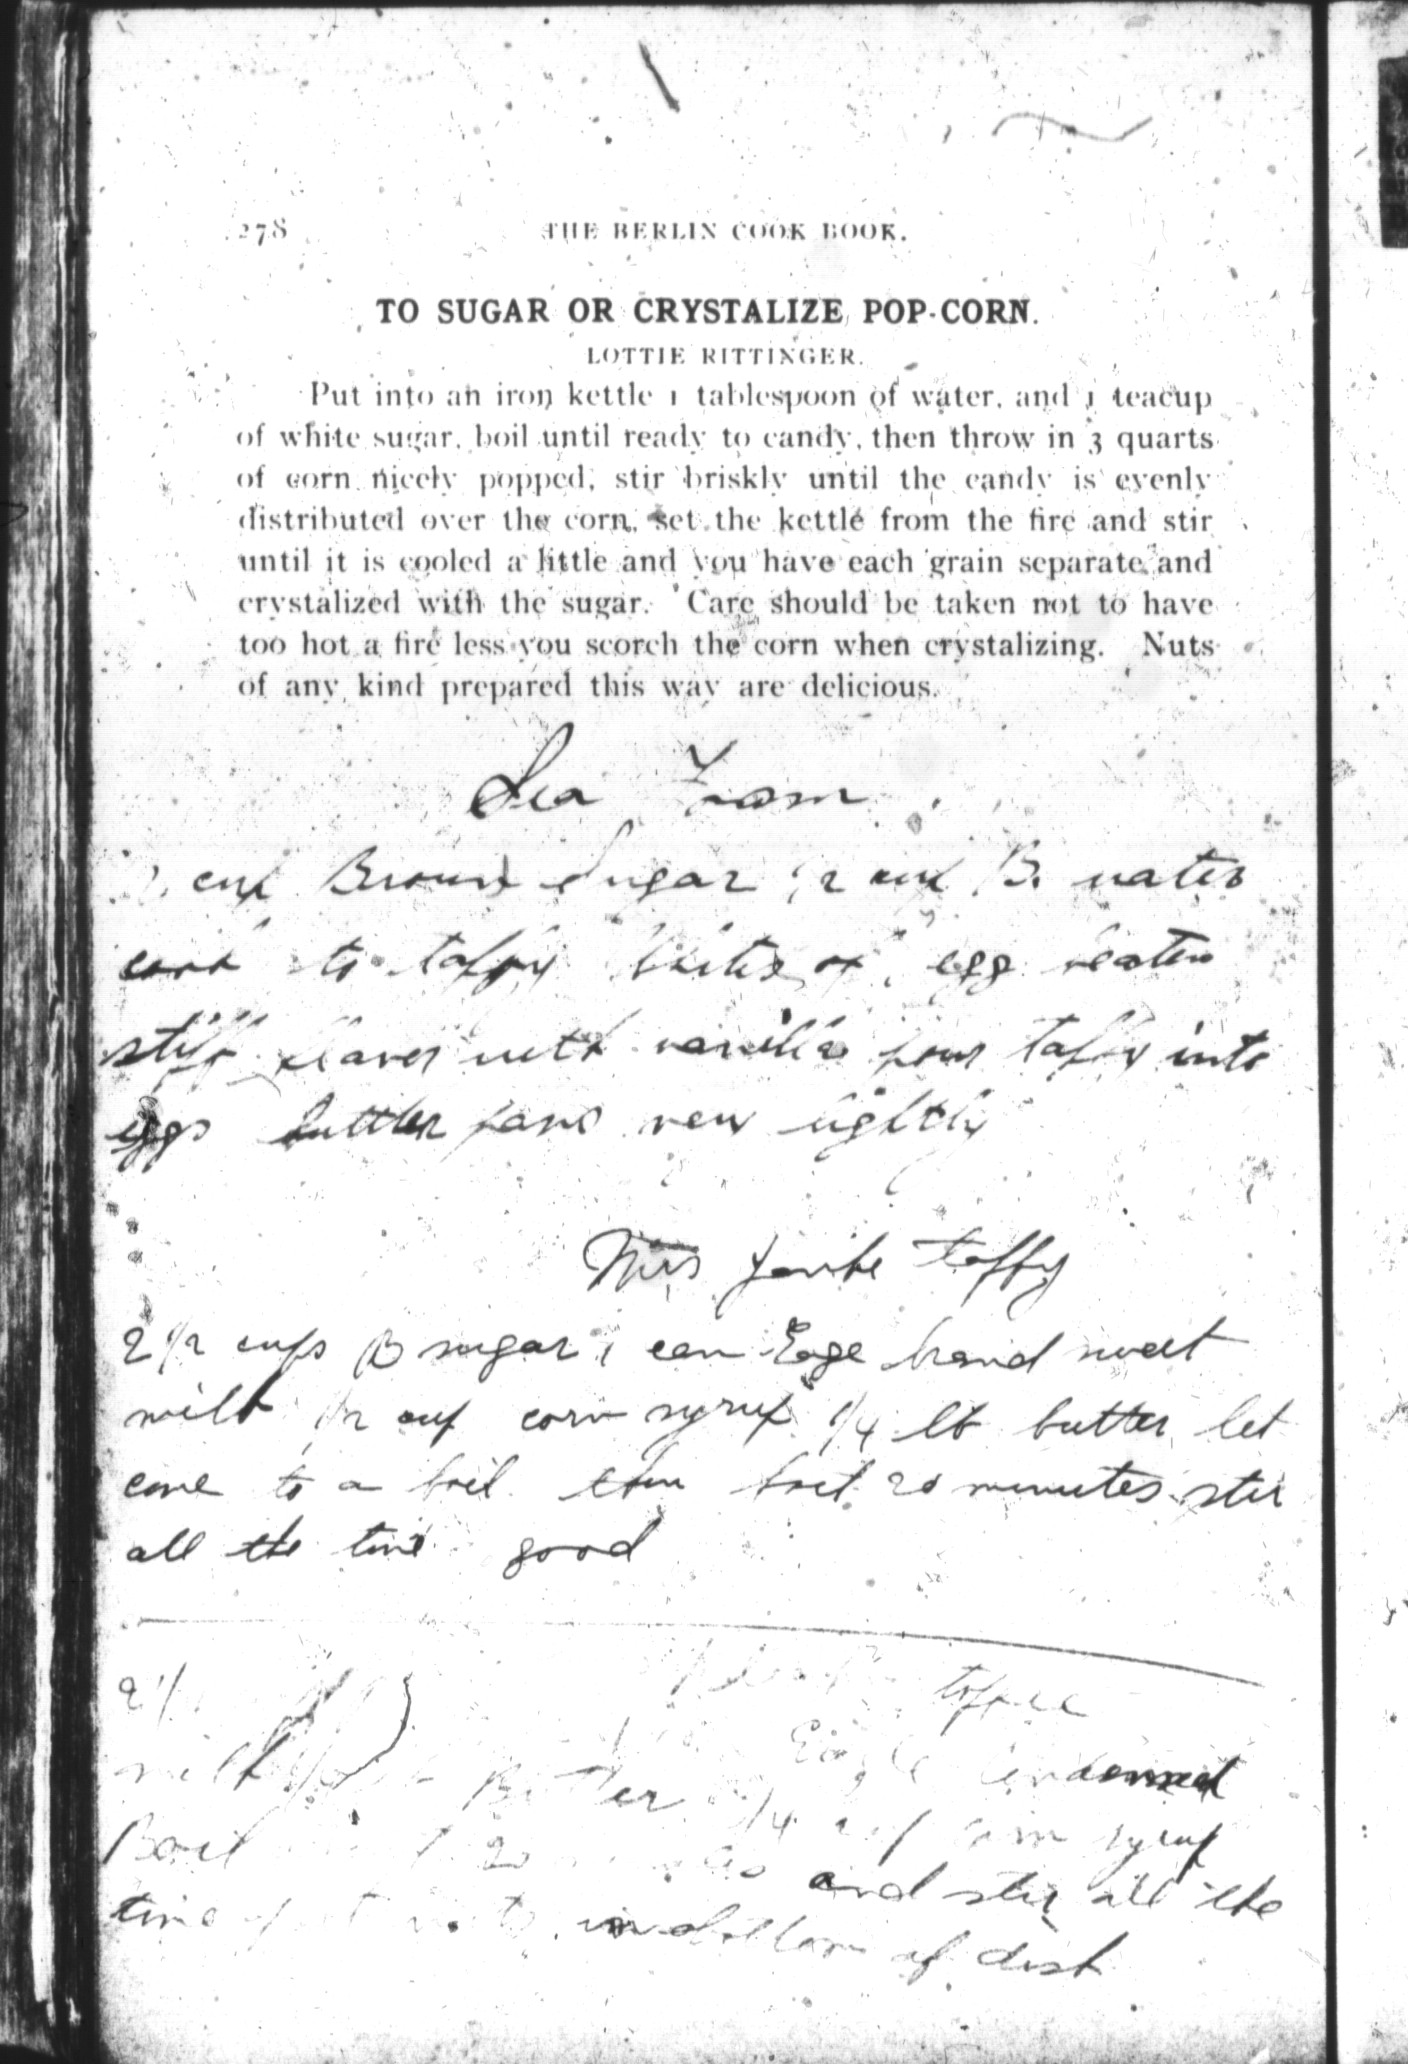 278
THE BERLIN COOK BOOK.
TO SUGAR OR CRYSTALIZE POP-CORN.
LOTTIE RITTINGER.
Put into an iron kettle 1 tablespoon of water, and 1 teacup
of white sugar, boil until ready to candy, then throw in 3 quarts
of corn nicely popped, stir briskly until the candy is evenly
distributed over the corn, set the kettle from the fire and stir
until it is cooled a little and you have each grain separate and
crystalized with the sugar. Care should be taken not to have
too hot a fire less you scorch the corn when crystalizing. Nuts
of any kind prepared this way are delicious.
Sea Foam
cup Brown Sugar 1/2 cup B. water
cook to taffy whites of egg beaten
stiff flavor with vanilla pour taffy into
eggs butter pans very lightly
Mrs taffy
2 1/2 cups B sugar 1 can Eagle brand sweet
milk 1/2 cup corn syrup 1/4 lb butter let
come to a boil then boil 20 minutes stir
all the time good
toffee
Eagle condensed
milk Butter 1/4 cup corn syrup
Boil 20 and stir all the
time bottom of dish